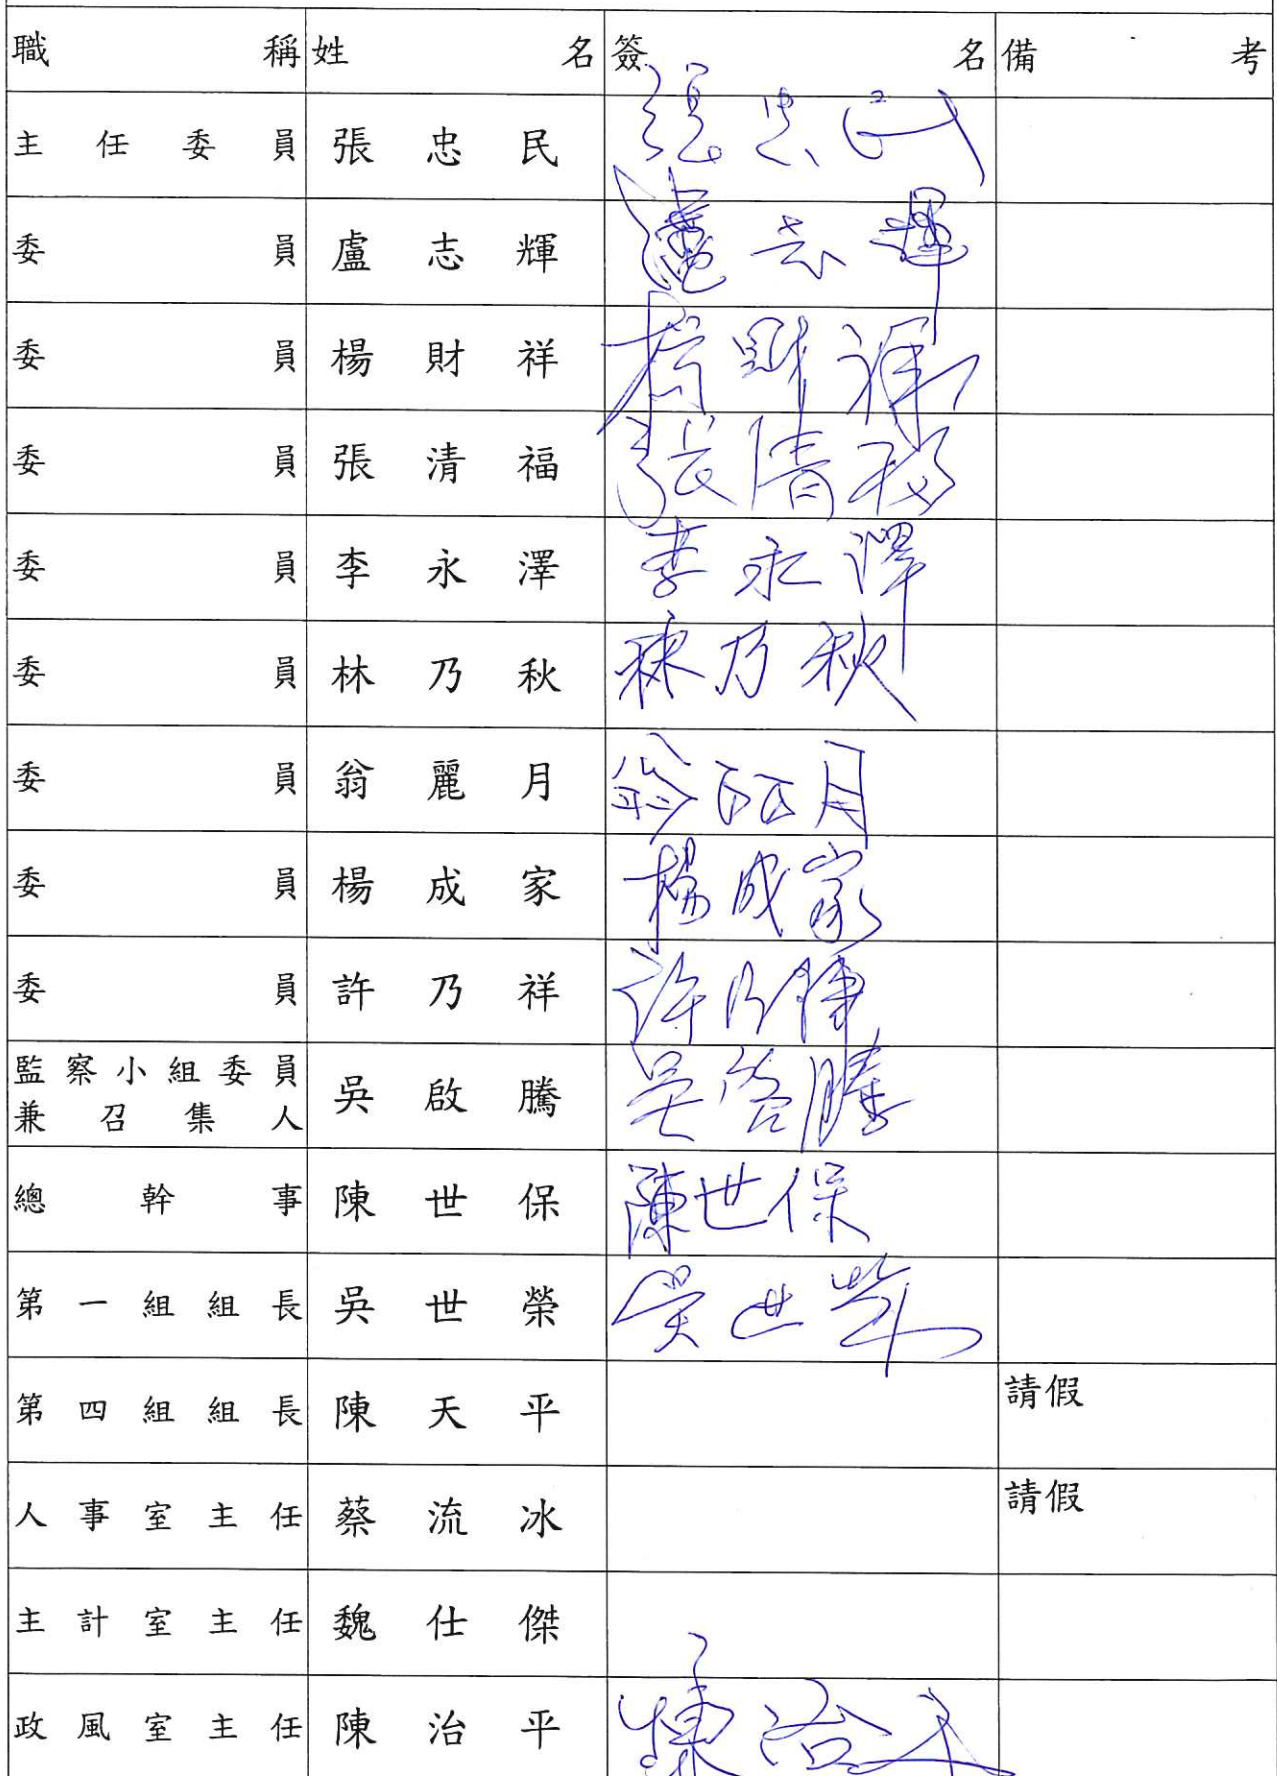 職稱 姓名 簽名 備考
主任委員 張忠民 張忠民
委員 盧志輝 盧志輝
委員 楊財祥 楊財祥
委員 張清福 張清福
委員 李永澤 李永澤
委員 林乃秋 林乃秋
委員 翁麗月 翁麗月
委員 楊成家 楊成家
委員 許乃祥 許乃祥
監察小組委員
兼召集人 吳啟騰 吳啟騰
總幹事 陳世保 陳世保
第一組組長 吳世榮 吳世榮
第四組組長 陳天平 請假
人事室主任 蔡流冰 請假
主計室主任 魏仕傑
政風室主任 陳治平 陳治平